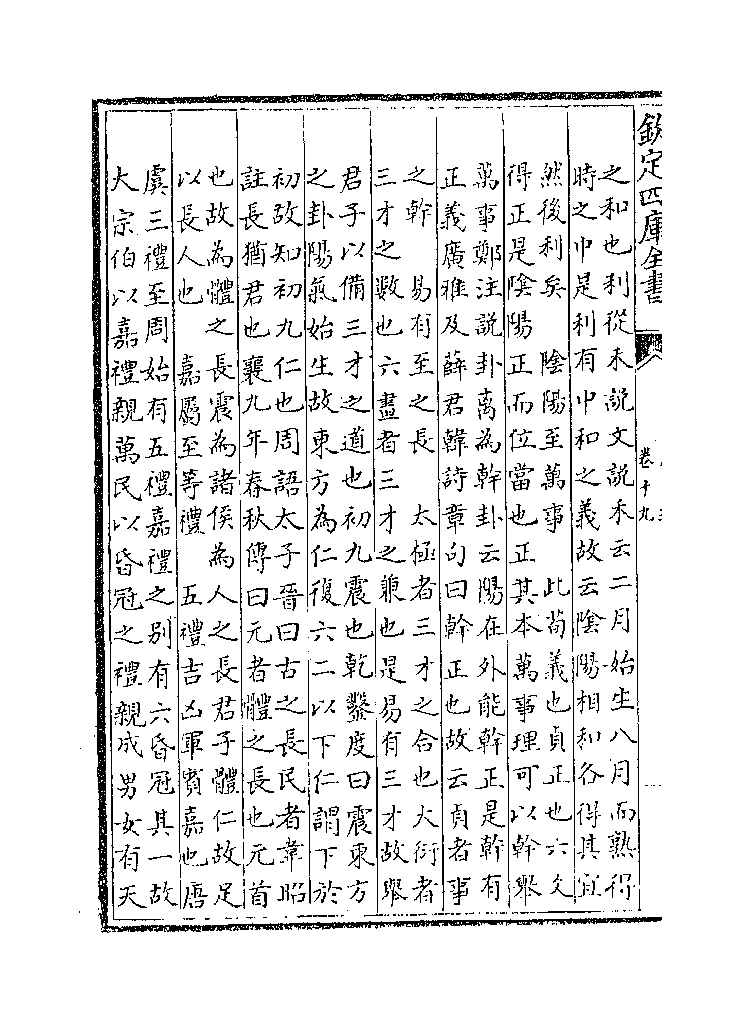 欽定四庫全書
卷十九
之和也利從禾說文說禾云二月始生八月而熟得
時之中是利有中和之義故云陰陽相和各得其宜
然後利矣　陰陽至萬事　此荀義也貞正也六爻
得正是陰陽正而位當也正其本萬事理可以幹舉
萬事鄭注說卦离為幹卦云陽在外能幹正是幹有
正義廣雅及薛君韓詩章句曰幹正也故云貞者事
之幹　易有至之長　太極者三才之合也大衍者
三才之數也六畫者三才之兼也是易有三才故舉
君子以備三才之道也初九震也乾鑿度曰震東方
之卦陽氣始生故東方為仁復六二以下仁謂下於
初故知初九仁也周語太子晉曰古之長民者韋昭
註長猶君也襄九年春秋傳曰元者體之長也元首
也故為體之長震為諸侯為人之長君子體仁故足
以長人也　嘉屬至等禮　五禮吉凶軍賓嘉也唐
虞三禮至周始有五禮嘉禮之別有六昏冠其一故
大宗伯以嘉禮親萬民以昏冠之禮親成男女有天